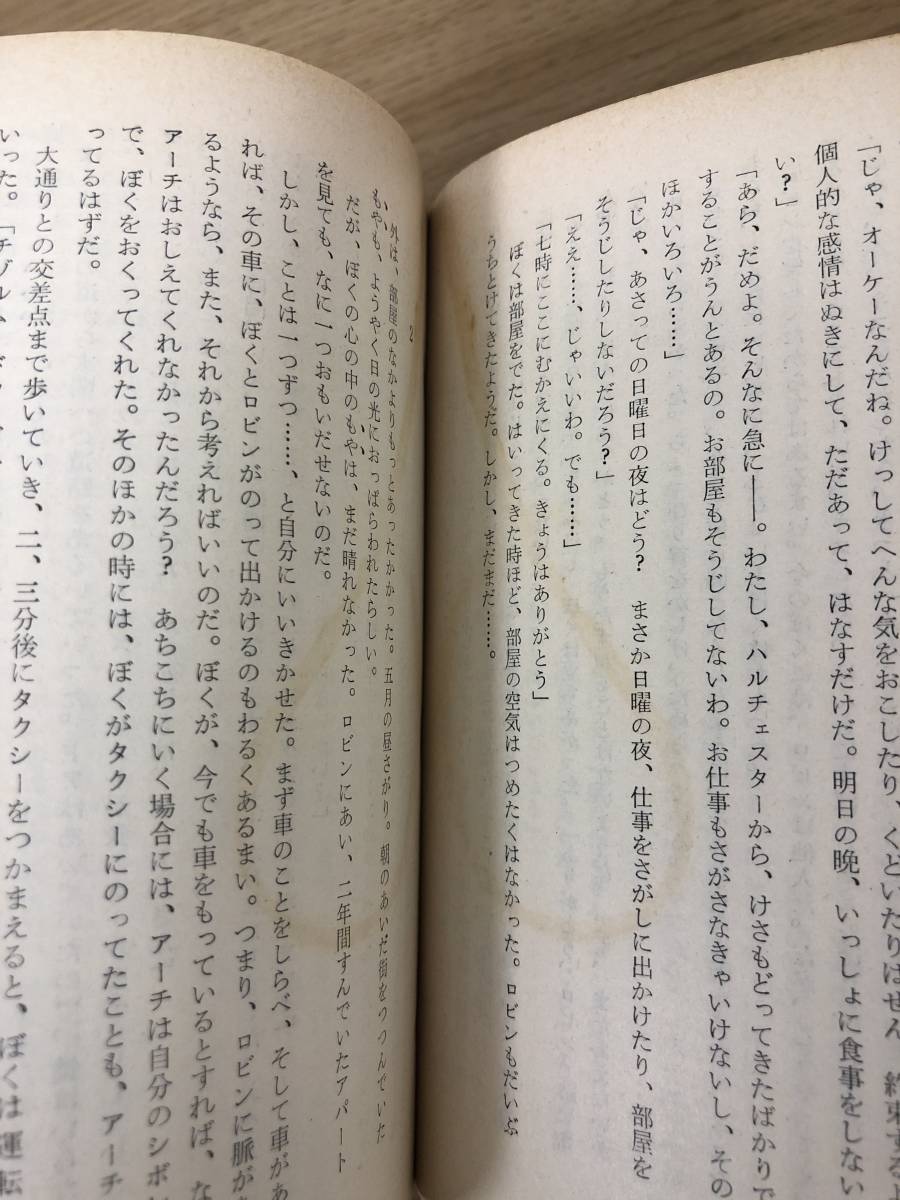 「じゃ、オーケーなんだね。けっしてへんな気をおこしたり、くどいたりはせん
個人的な感情はぬきにして、ただあって、はなすだけだ。明日の晩、いっしょに食事をしない
い？」
「あら、だめよ。そんなに急に――。わたし、ハルチェスターから、けさもどってきたばかりで
することがうんとあるの。お部屋もそうじしてないわ。お仕事もさがさなきゃいけないし、その
ほかいろいろ……」
「じゃ、あさっての日曜日の夜はどう？　まさか日曜の夜、仕事をさがしに出かけたり、部屋を
そうじしたりしないだろう？」
「ええ……、じゃいいわ。でも……」
「七時にここにむかえにくる。きょうはありがとう」
ぼくは部屋をでた。はいってきた時ほど、部屋の空気はつめたくはなかった。ロビンもだいぶ
うちとけてきたようだ。しかし、まだまだ……。
2
外は、部屋のなかよりもっとあったかかった。五月の昼さがり。朝のあいだ街をつつんでいた
もやも、ようやく日の光においはらわれたらしい。
だが、ぼくの心の中のもやは、まだ晴れなかった。ロビンにあい、二年間すんでいたアパート
を見ても、なに一つおもいだせないのだ。
しかし、ことは一つずつ……、と自分にいいきかせた。まず車のことをしらべ、そして車があ
れば、その車に、ぼくとロビンがのって出かけるのもわるくあるまい。つまり、ロビンに脈があ
るようなら、また、それから考えればいいのだ。ぼくが、今でも車をもっているとすれば、な
アーチはおしえてくれなかったんだろう？　あちこちにいく場合には、アーチは自分のシボレ
で、ぼくをおくってくれた。そのほかの時には、ぼくがタクシーにのってたことも、アーチ
ってるはずだ。
大通りとの交差点まで歩いていき、二、三分後にタクシーをつかまえると、ぼくは運転
いった。